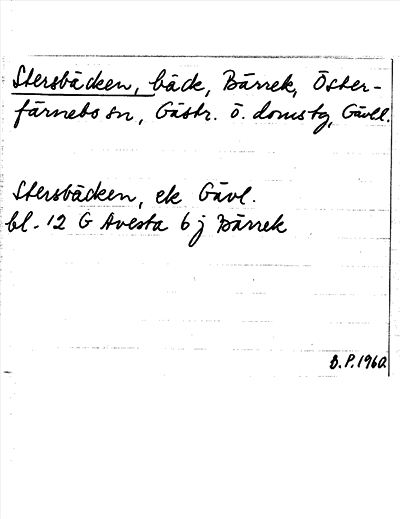 Stersbäcken, bäck, Bärrek, Öster-
färnebo sn, Gästr. ö. domstg, Gävl.
Stersbäcken, ek Gävl.
bl. 12 G Avesta 6 j Bärrek
B.P. 1960